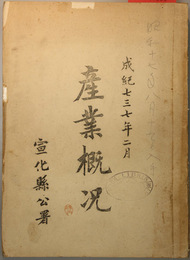 成紀七三七年二月
産業概况
宣化縣公署